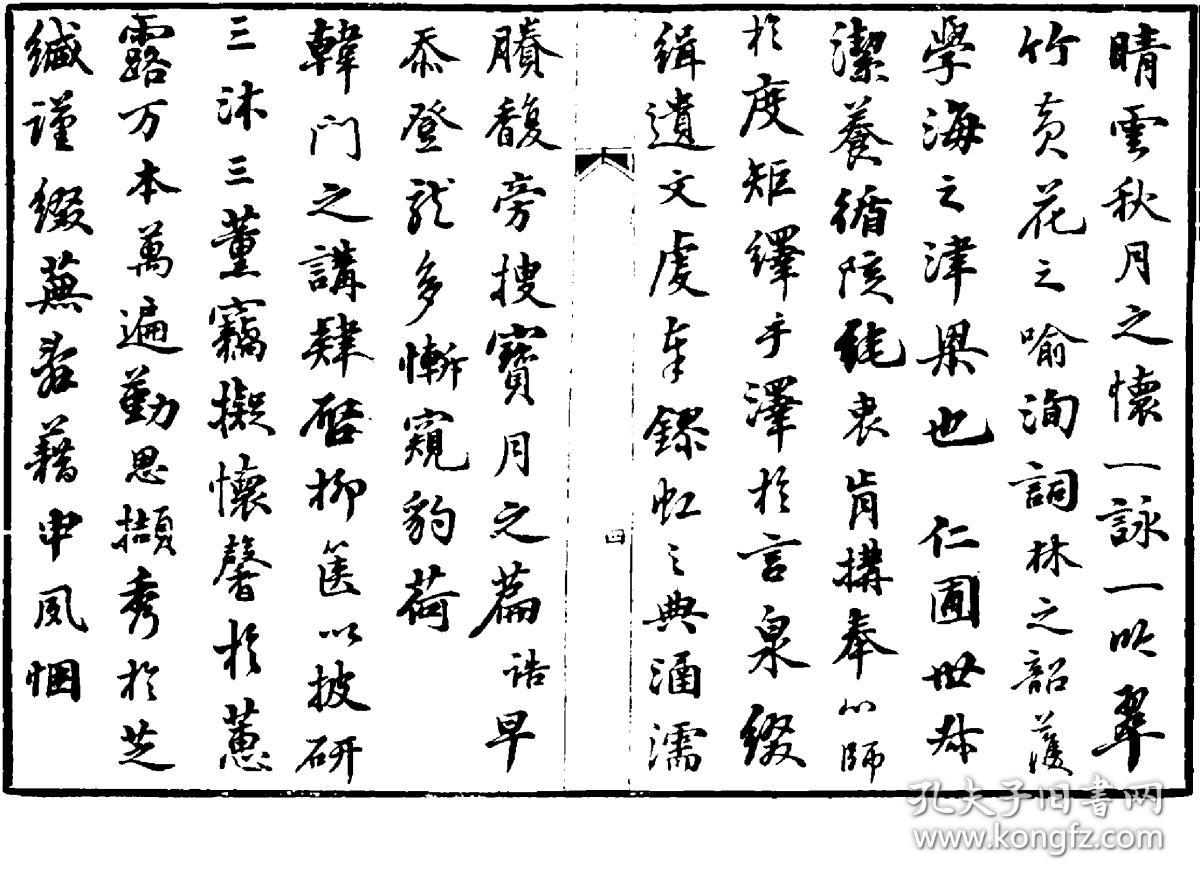 晴雲秋月之懷一詠一吹翠
竹黄花之喻洵詞林之韶頀
學海之津梁也仁圃世叔
潔養循陔純衷肯搆奉心師
於度矩繹手澤於言泉綴
緝遺文虔奉錄虹之典涵濡
賸馥旁搜寶月之篇誥早
忝登龍多慚窺豹荷
韓門之講肄啓柳篋以披研
三沐三薰竊擬懷馨於蕙
露万本萬遍勤思擷秀於芝
緘謹綴蕪辭藉申風悃
四
孔夫子旧书网
www.kongfz.com